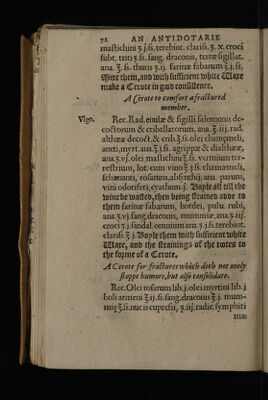 72 AN ANTIDOTARIE
mastichini ʒ.j.ß. terebint. clariss. ʒ.x. croci
subt. triti ʒ.ß. sang. draconis, terræ sigillat.
ana. ʒ.ß. thuris ʒ.ij. farinæ fabarum ʒ.j.ß.
Mixe them, and with sufficient white Waxe
make a Cerote in good consistence.
A Cerote to comfort a fractured
member.
Vigo. Rec. Rad. enulæ & sigilli salomonis de-
coctorum & cribellatorum, ana. ʒ.iij. rad.
althææ decoct. & crib. ʒ.ß. olei chamæmeli,
aneti, myrt. ana ʒ.j.ß. agrippæ & dialthææ,
ana. ʒ.vj. olei mastichini ʒ.ß. vermium ter-
restrium, lot. cum vino ʒ.j.ß. chamæmeli,
schœnanti, rosarum, absynthij, ana. parum,
vini odoriferi, cyathum.j. Boyle all till the
wine be wasted, then being strained adde to
them farinæ fabarum, hordei, pulu. rubi,
ana. ʒ.vj. sang. draconis, mummiæ ana. ʒ.iij.
croci ʒ.j. sandal. omnium ana. ʒ.j.ß. terebint.
clariss. ʒ.j. Boyle them with sufficient white
Waxe, and the strainings of the rootes to
the forme of a Cerote.
A Cerote for fractures which doth not onely
stoppe humors, but also consolidate.
Rec. Olei rosarum lib.j. olei myrtini lib.j
boli armeni ʒ.ij.ß. sang. draconis ʒ.j. mum-
miæ ʒ.ß. nucis cupressi, ʒ.iij. radic. symphiti